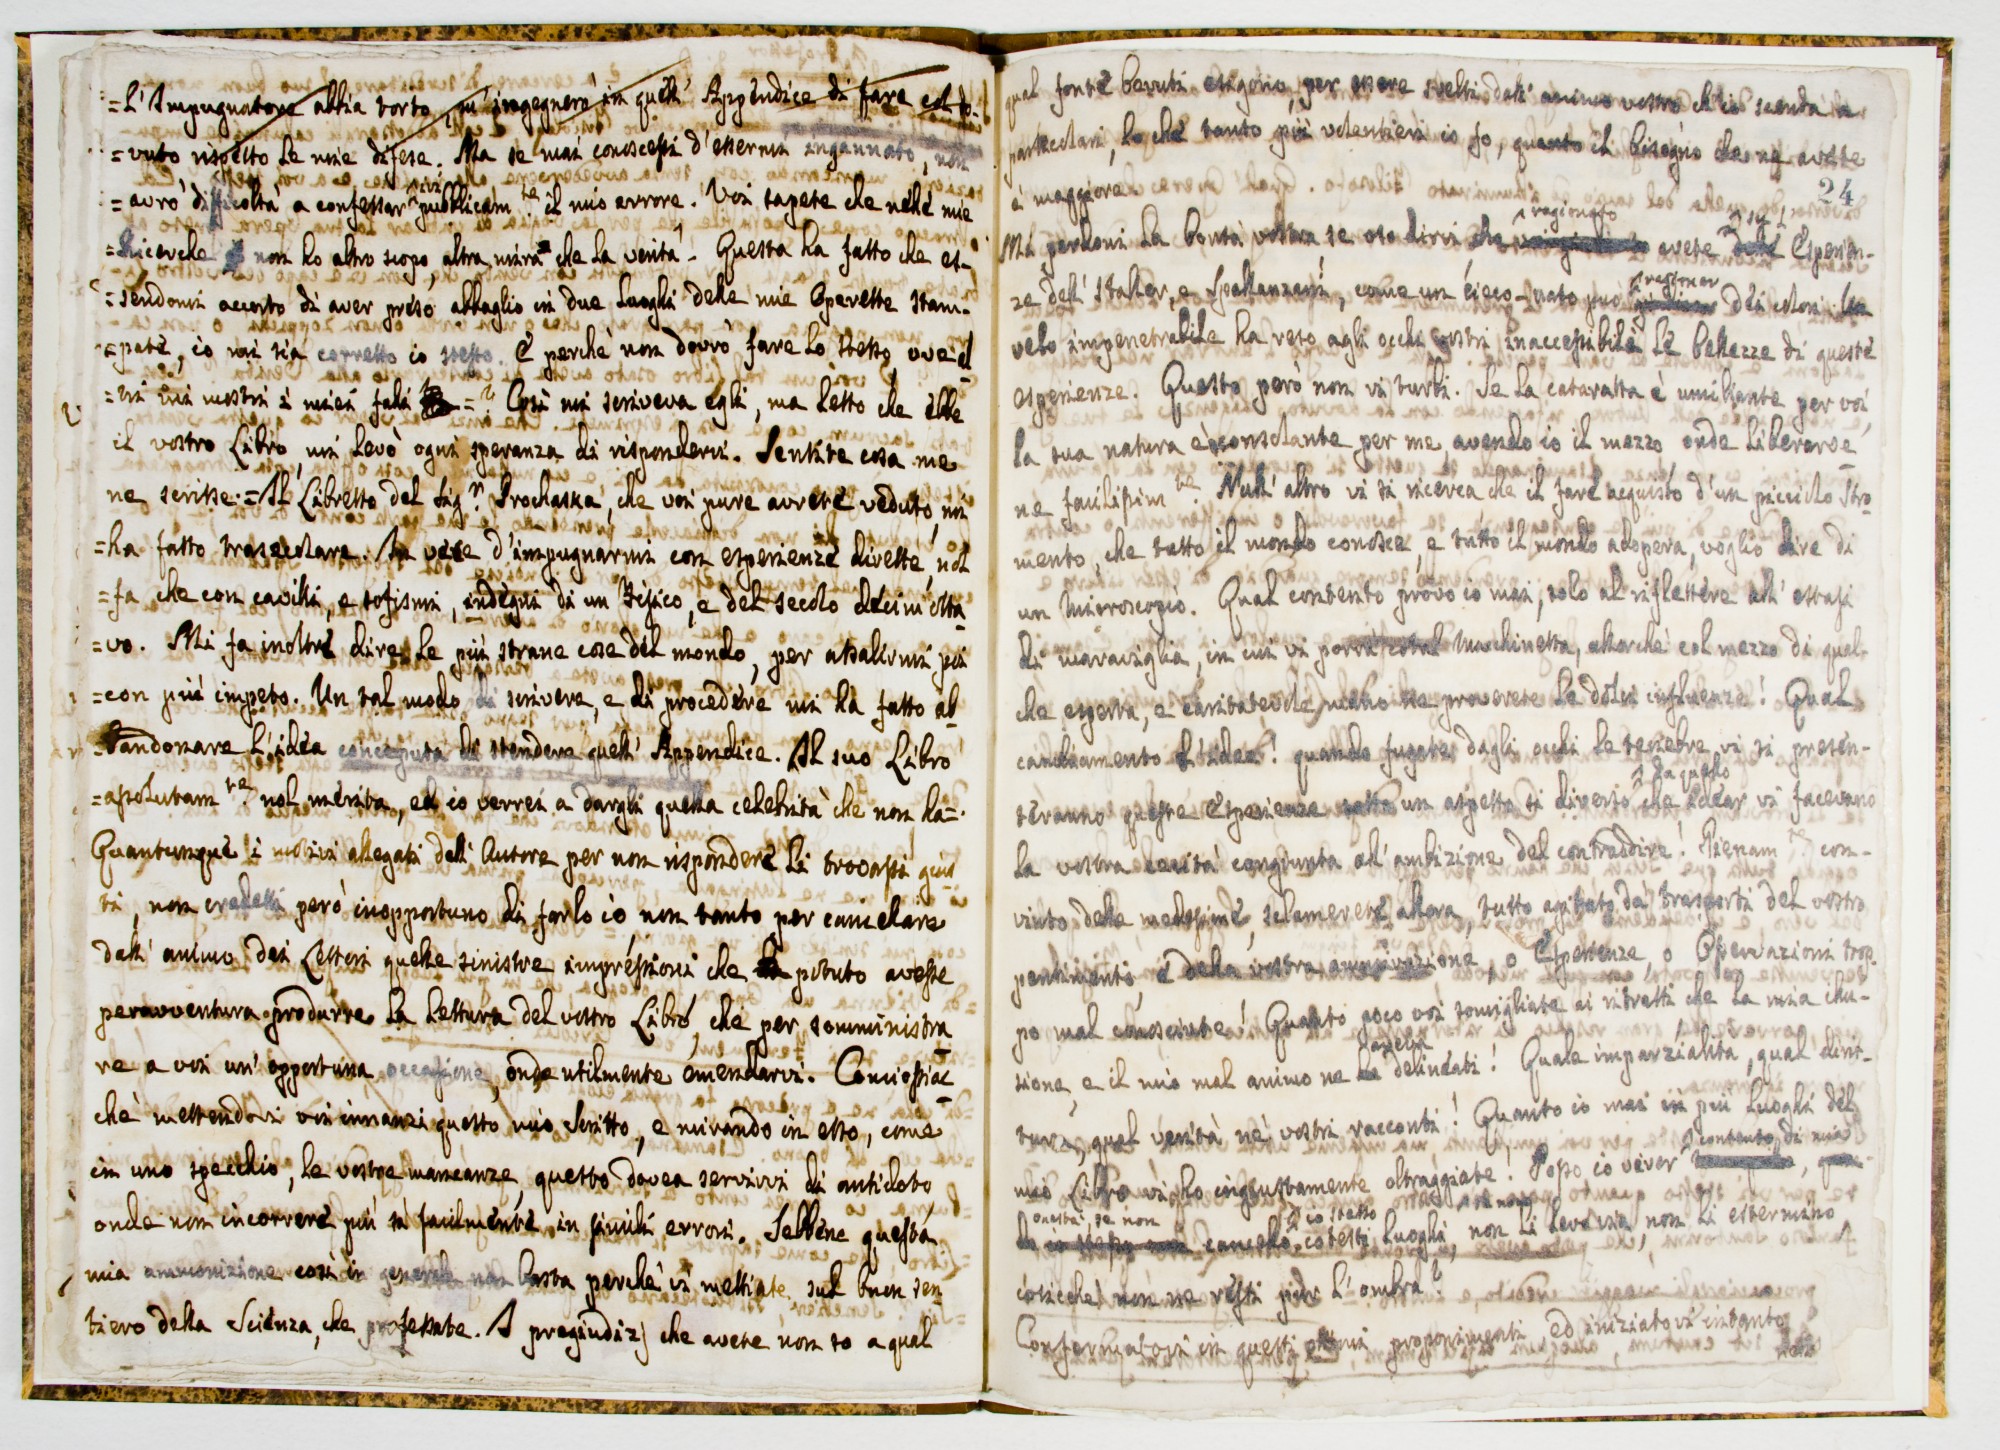 =L'Impugnatore abbia torto, m'ingegnerò in quell'Appendice di fare col do-
=vuto rispetto le mie difese. Ma se mai conoscessi d'essermi ingannato, non
=avrò difficoltà a confessar vivi pubblicam.te il mio errore. Voi sapete che nelle mie
=Ricerche non ho altro scopo, altra mira che la verità. Questa ha fatto che es-
=sendomi accorto di aver preso abbaglio in due luoghi delle mie Operette stam-
=pate, io mi sia corretto io stesso. E perchè non dovrò fare lo stesso, ove al-
=tri mi mostri i miei falli = Così mi scriveva egli, ma letto che ebbe
il vostro Libro, mi levò ogni speranza di rispondervi. Sentite cosa me
ne scrisse = Il Libretto del Sig.r Prochaska, che voi pure avrete veduto, mi
=ha fatto trasecolare. In vece d'impugnarmi con esperienze dirette, nol
=fa che con cavilli, e sofismi, indegni di un Fisico, e del secolo decim'otta-
=vo. Mi fa inoltre dire le più strane cose del mondo, per assalirmi poi
=con più impeto. Un tal modo di scrivere, e di procedere mi ha fatto ab-
=bandonare l'idea conceputa di stendere quell'Appendice. Il suo Libro
=assolutam.te nol merita, ed io verrei a dargli quella celebrità che non ha=.
Quantunque i motivi allegati dall'Autore per non rispondere li trovassi gius-
ti, non credetti però inopportuno di farlo io non tanto per cancellare
dall'animo dei Lettori quelle sinistre impressioni che potuto avesse
peravventura produrre la lettura del vostro Libro, che per somministra-
re a voi un'opportuna occasione, onde utilmente emendarvi. Conciossiac-
chè mettendovi voi innanzi questo mio Scritto, e mirando in esso, come
in uno specchio, le vostre mancanze, questo dovea servirvi di antidoto
onde non incorrere più sì facilmente in simili errori. Sebbene questa
mia ammonizione così in generale non basta perchè vi mettiate sul buon sen-
tiero della Scienza, che professate. I pregiudizj che avete non so a qual
24
qual fonte bevuti esigono, per essere svelti dall'animo vostro ch'io scenda a
particolari, lo che tanto più volentieri io fo, quanto il bisogno che ne avete
è maggiore.
Mi perdoni la bontà vostra se oso dirvi che ragionato avete Esperien-
ze dell'Haller, e Spallanzani, come un cieco-nato può ragionar dei colori. Un
velo impenetrabile ha reso agli occhi vostri inaccessibile le bellezze di queste
esperienze. Questo però non vi turbi. Se la cataratta è umiliante per voi,
la sua natura è consolante per me, avendo io il mezzo onde liberarve-
ne facilissim.te. Null'altro vi si ricerca che il fare acquisto d'un picciolo Stro-
mento, che tutto il mondo conosce, e tutto il mondo adopera, voglio dire di
un Microscopio. Qual contento provo io mai, solo al riflettere all'estasi
di maraviglia, in cui vi porrà cotal Macchinetta, allorchè col mezzo di qual-
che esperta, e caritatevole mano ne proverete le dolci influenze! Qual
cambiamento d'idee! quando fugate dagli occhi le tenebre vi si presen-
teranno queste Esperienze sotto un aspetto sì diverso da quello che idear vi facevano
la vostra cecità congiunta all'ambizione del contraddire! Pienam.te con-
vinto delle medesime, sclamerete allora, tutto agitato da trasporti del vostro
pentimento, e della vostra ammirazione, o Esperienze, o Osservazioni trop-
po mal conosciute! Quanto poco voi somigliate ai ritratti che la mia illu-
sione, e il mio mal animo ne avevan delineati! Quale imparzialità, qual dirit-
tura, qual verità ne' vostri racconti! Quanto io mai in più luoghi del
mio Libro vi ho ingiustamente oltraggiate! Posso io viver contento di mia
onestà, se non cancello io stesso cotesti luoghi, se non li levo via, non li estermino
cosicchè non ne resti più l'ombra?
Confermatovi in questi proponimenti, ed iniziatovi intanto